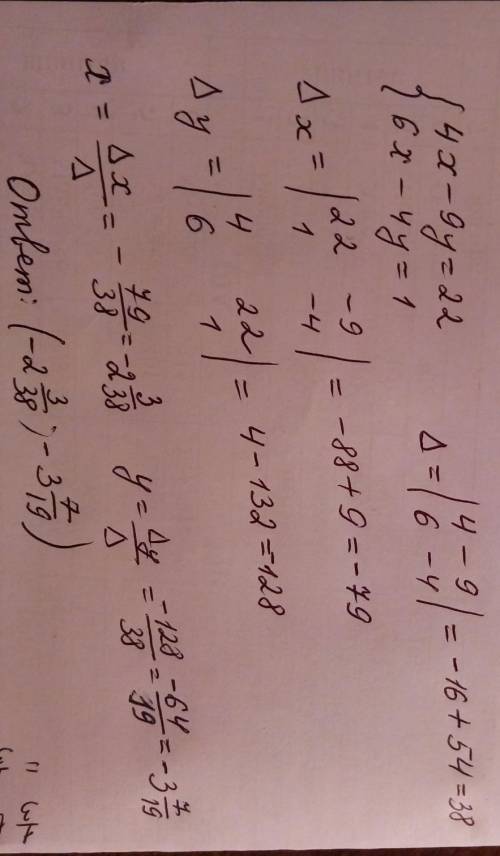 { 4x - 9y = 22
6x - 4y = 1
Δ = | 4 -9
6 -4 | = -16 + 54 = 38
Δx = | 22 -9
1 -4 | = -88 + 9 = -79
Δy = | 4 22
6 1 | = 4 - 132 = -128
x = Δx/Δ = - 79/38 = -2 3/38 y = Δy/Δ = -128/38 = -64/19 = -3 7/19
Ответ: (-2 3/38; -3 7/19)